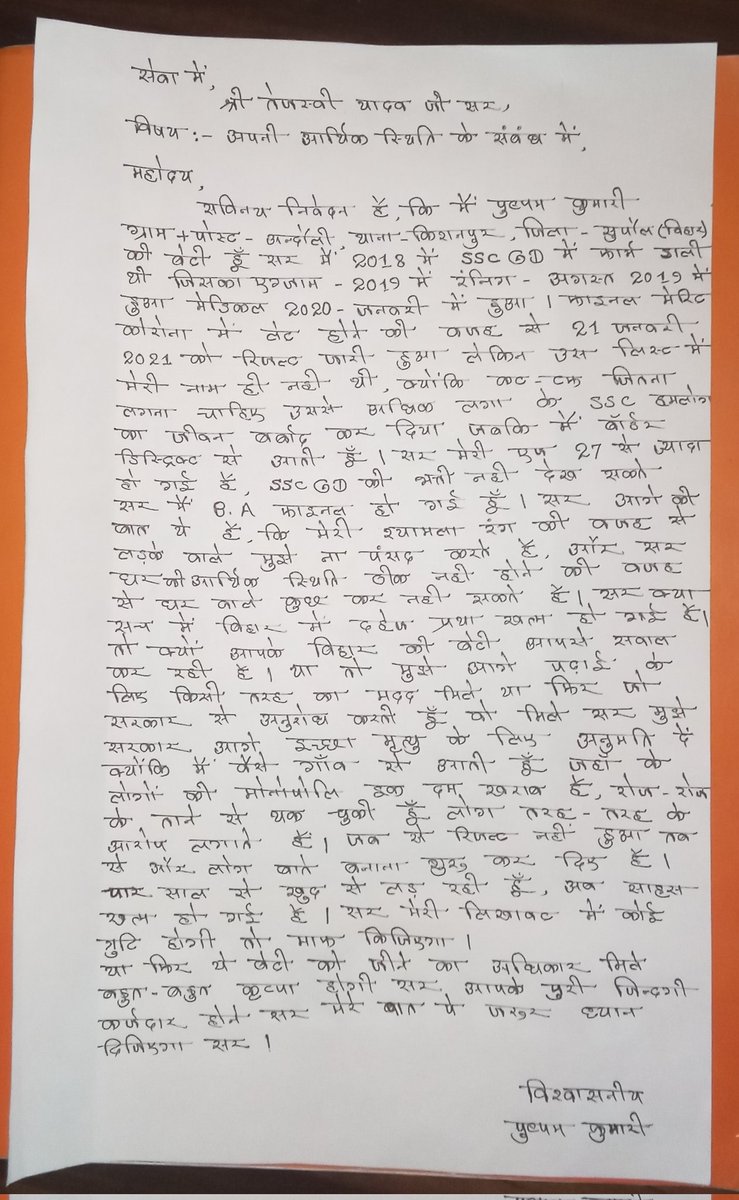 सेवा में,
श्री तेजस्वी यादव जी सर,
विषय :- अपनी आर्थिक स्थिति के संबंध में,
महोदय,
सविनय निवेदन है, कि मैं पुष्पम कुमारी
ग्राम + पोस्ट - अन्दौली, थाना - किशनपुर, जिला - सुपौल (बिहार)
की बेटी हूँ सर मैं 2018 में SSC GD में फार्म डाली
थी जिसका एग्जाम - 2019 में रंनिग - अगस्त 2019 में
हुआ मेडिकल 2020 - जनवरी में हुआ । फाइनल मेरिट
कोरोना में लेट होने की वजह से 21 जनवरी
2021 को रिजल्ट जारी हुआ लेकिन उस लिस्ट में
मेरी नाम ही नही थी, क्योंकि कट - टफ जितना
लगना चाहिए उससे अधिक लगा के SSC हमलोग
का जीवन बर्बाद कर दिया जबकि मैं बॉर्डर
डिस्ट्रिक्ट से आती हूँ । सर मेरी एज 27 से ज्यादा
हो गई है, SSC GD की भर्ती नही देख सकते
सर मैं B.A फाइनल हो गई हूँ । सर आगे की
बात ये है, कि मेरी श्यामला रंग की वजह से
लड़के वाले मुझे ना पंसद करते है, और सर
घर की आर्थिक स्थिति ठीक नही होने की वजह
से घर वाले कुछ कर नही सकते है । सर क्या
सच में बिहार में दहेज प्रथा खत्म हो गई है ।
तो क्यों आपके बिहार की बेटी आपसे सवाल
कर रही है । या तो मुझे आगे पढ़ाई के
लिए किसी तरह का मदद मिले या फिर जो
सरकार से अनुरोध करती हूँ वो मिले सर मुझे
सरकार आगे इच्छा मृत्यु के लिए अनुमति दें
क्योंकि मैं वैसे गाँव से आती हूँ जहाँ के
लोगों की मोनोपोलि इक दम खराब है, रोज - रोज
के ताने से थक चुकी हूँ लोग तरह - तरह के
आरोप लगाते हैं । जब से रिजल्ट नहीं हुआ तब
से और लोग बाते बनाना शुरू कर दिए है ।
चार साल से खुद से लड़ रही हूँ, अब साहस
खत्म हो गई है । सर मेरी लिखावट में कोई
त्रुटि होगी तो माफ किजिएगा ।
या फिर ये बेटी को जीने का अधिकार मिले
बहुत - बहुत कृप्पा होगी सर आपके पुरी जिन्दगी
कर्जदार होने सर मेरे बात पे जरूर ध्यान
दिजिएगा सर ।
विश्वासनीय
पुष्पम कुमारी